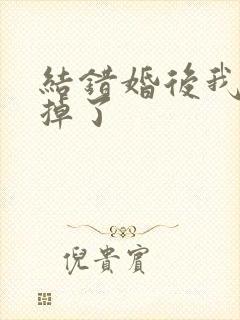 結錯婚後我
掉了
倪貴賓